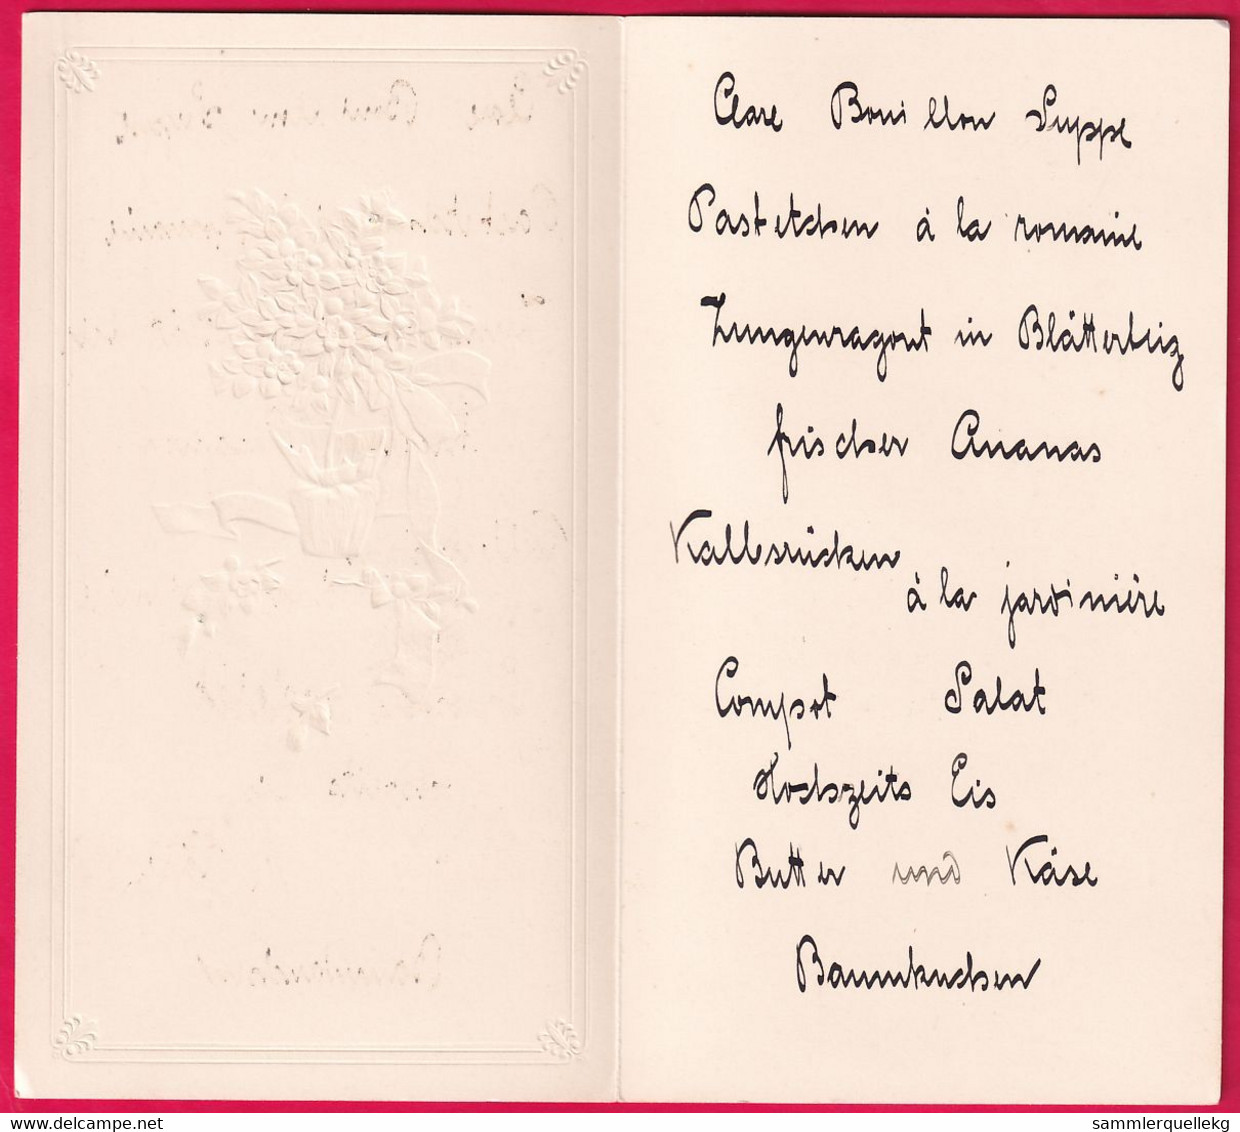 Clare Bouillon Suppe
Pastetchen à la romaine
Zungenragout in Blätterteig
frischer Ananas
Kalbsrücken
à la jardinière
Compot Salat
Hochzeits Eis
Butter und Käse
Baumkuchen
sammlerquellekg